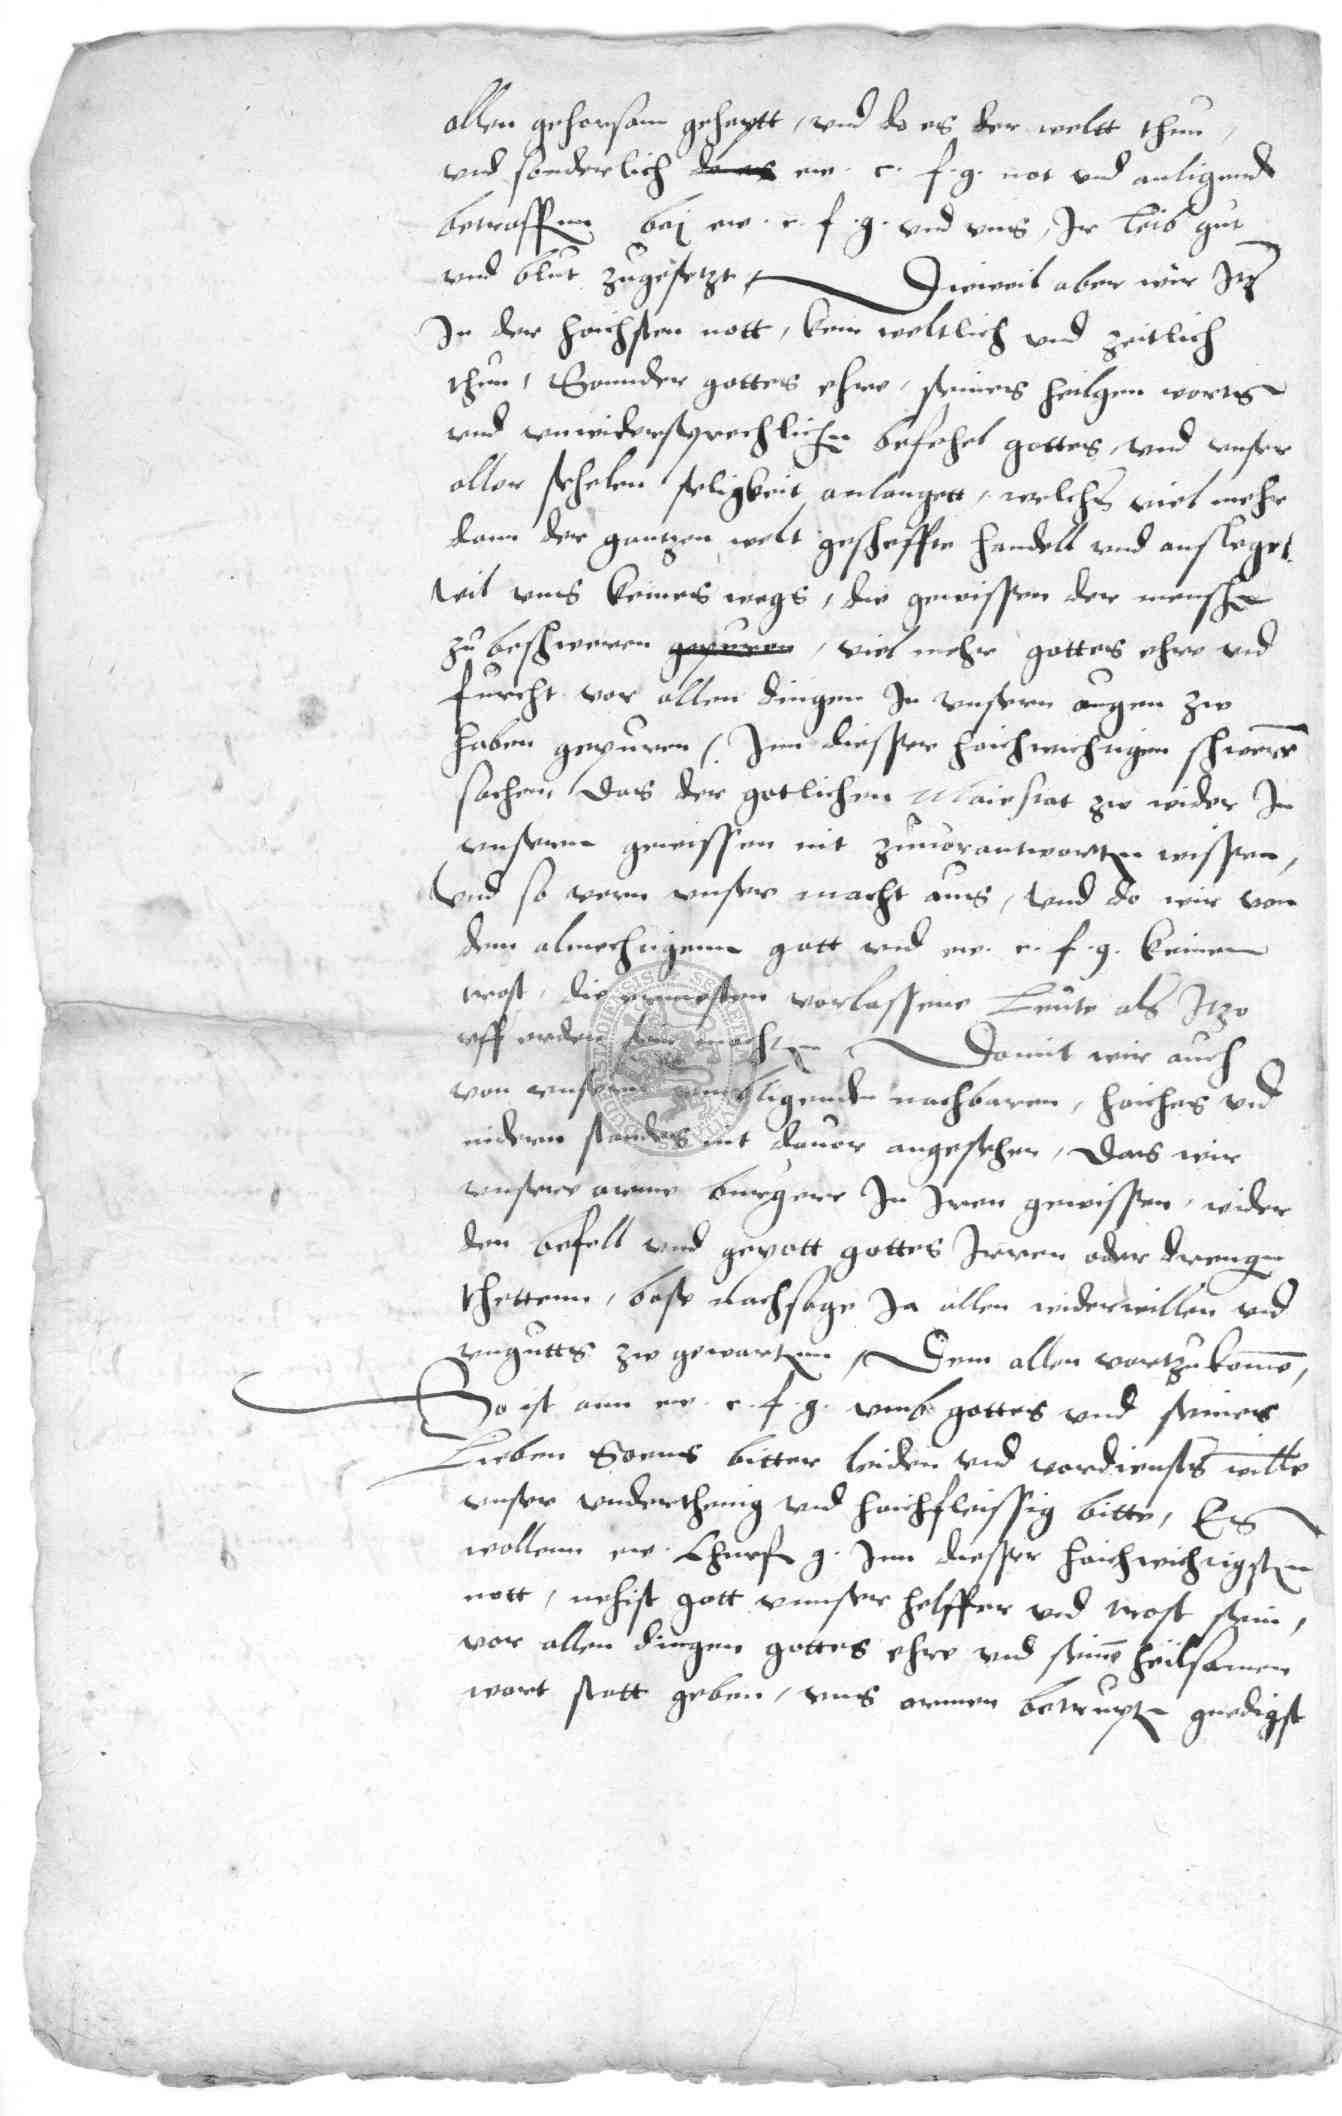 allen gehorsam gehaptt, vnd do es der weltt thun,
vnd sonderlich do es ew. c. f. g. not vnd anligend
betraffenn bej ew. c. f. g. vnd vns, Ir leib gut
vnd blut zugesetzt, Dieweil aber wir Itz
In der hoichsten nott, kein weltlich vnd zeitlich
thun, Sonnder gottes ehre, seines heilgen worts
vnd vnwidersprechlichen befehel gottes, vnd vnser
aller sehelen seligkeit anlangett, welchs viel mehr
dann der gantzen welt gescheffte handell vnd
wil vns keines wegs, die gewissen der menschen
zu beschweren gepuren, viel mehr gottes ehre vnd
furcht vor allen dingen In vnsern augen zw
haben gepuren, Inn diesser hoichwichtigen schweren
sachen, Das der gotlichen Maiestat zw wider In
vnserm gewissen nit zuuorantworten wissen,
Vnd so vern vnser macht aus, vnd do wir von
dem almechtigenn gott vnd ew. c. f. g. keinen
trost, die vorlassene Leute als Itzo
vff erden Damit wir auch
von vnsern vmbligenden nachbaren, hoiches vnd
nidern standes nit dauor angesehen, Das wir
vnsere arme burgere In Iren gewissen, wider
den befell vnd gepott gottes Irren oder drengen
thettenn, bose nachsage In allen widerwillen vnd
vngutts zw gewartenn, Dem allen vortzukomen,
So ist ann ew. c. f. g. vmb gottes vnd seines
Lieben Soens bitter leiden vnd vordiensts wille
vnser vnderthenig vnd hoichfleissig bitte, Es
wollenn ew. Churf. g. Inn diesser hoichwichtigsten
nott, nehist gott vnnser helffer vnd trost sein,
vor allen dingen gottes ehre vnd seinem heilsamen
wort statt geben, vns armen betrupten gnedigst